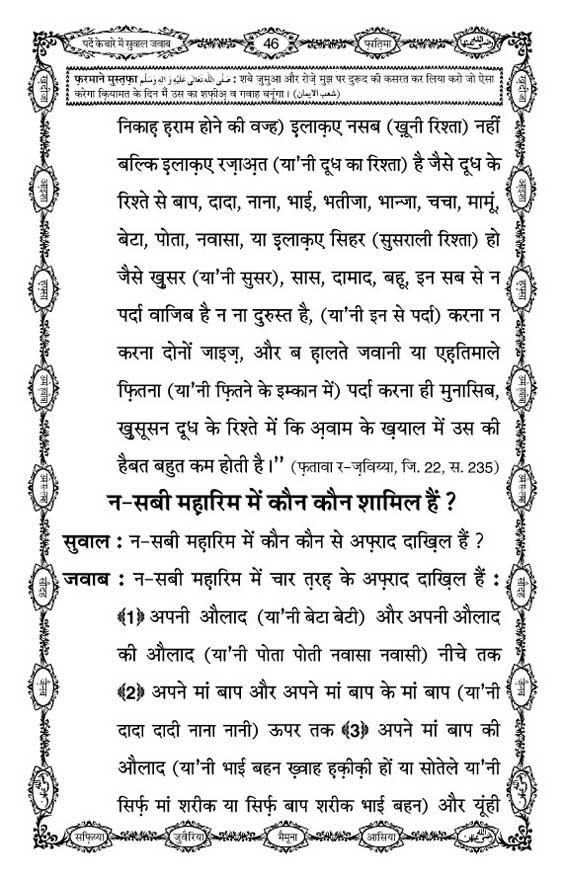 पर्दे के बारे में सुवाल जवाब
46
फ़ातिमा
फ़रमाने मुस्तफ़ा صَلَّى اللّٰهُ تَعَالٰى عَلَيْهِ وَاٰلِهٖ وَسَلَّم : शबे जुमुआ और रोज़े मुझ पर दुरूद की कसरत कर लिया करो जो ऐसा
करेगा क़ियामत के दिन मैं उस का शफ़ीअ़ व गवाह बनूंगा। (شعب الایمان)
निकाह हराम होने की वज्ह) इलाक़ए नसब (ख़ूनी रिश्ता) नहीं
बल्कि इलाक़ए रज़ाअ़त (या'नी दूध का रिश्ता) है जैसे दूध के
रिश्ते से बाप, दादा, नाना, भाई, भतीजा, भान्जा, चचा, मामूं,
बेटा, पोता, नवासा, या इलाक़ए सिहर (सुसराली रिश्ता) हो
जैसे ख़ुसर (या'नी सुसर), सास, दामाद, बहू, इन सब से न
पर्दा वाजिब है न ना दुरुस्त है, (या'नी इन से पर्दा) करना न
करना दोनों जाइज़, और ब हालते जवानी या एह़तिमाले
फ़ितना (या'नी फ़ितने के इम्कान में) पर्दा करना ही मुनासिब,
ख़ुसूसन दूध के रिश्ते में कि अ़वाम के ख़याल में उस की
हैबत बहुत कम होती है।" (फ़तावा र-ज़विय्या, जि. 22, स. 235)
न-सबी महारिम में कौन कौन शामिल हैं ?
सुवाल : न-सबी महारिम में कौन कौन से अफ़राद दाख़िल हैं ?
जवाब : न-सबी महारिम में चार त़रह़ के अफ़राद दाख़िल हैं :
﴾1﴿ अपनी औलाद (या'नी बेटा बेटी) और अपनी औलाद
की औलाद (या'नी पोता पोती नवासा नवासी) नीचे तक
﴾2﴿ अपने मां बाप और अपने मां बाप के मां बाप (या'नी
दादा दादी नाना नानी) ऊपर तक ﴾3﴿ अपने मां बाप की
औलाद (या'नी भाई बहन ख़्वाह ह़क़ीक़ी हों या सोतेले या'नी
सिर्फ़ मां शरीक या सिर्फ़ बाप शरीक भाई बहन) और यूंही
सफ़िय्या
जुवैरिया
मैमूना
आसिया